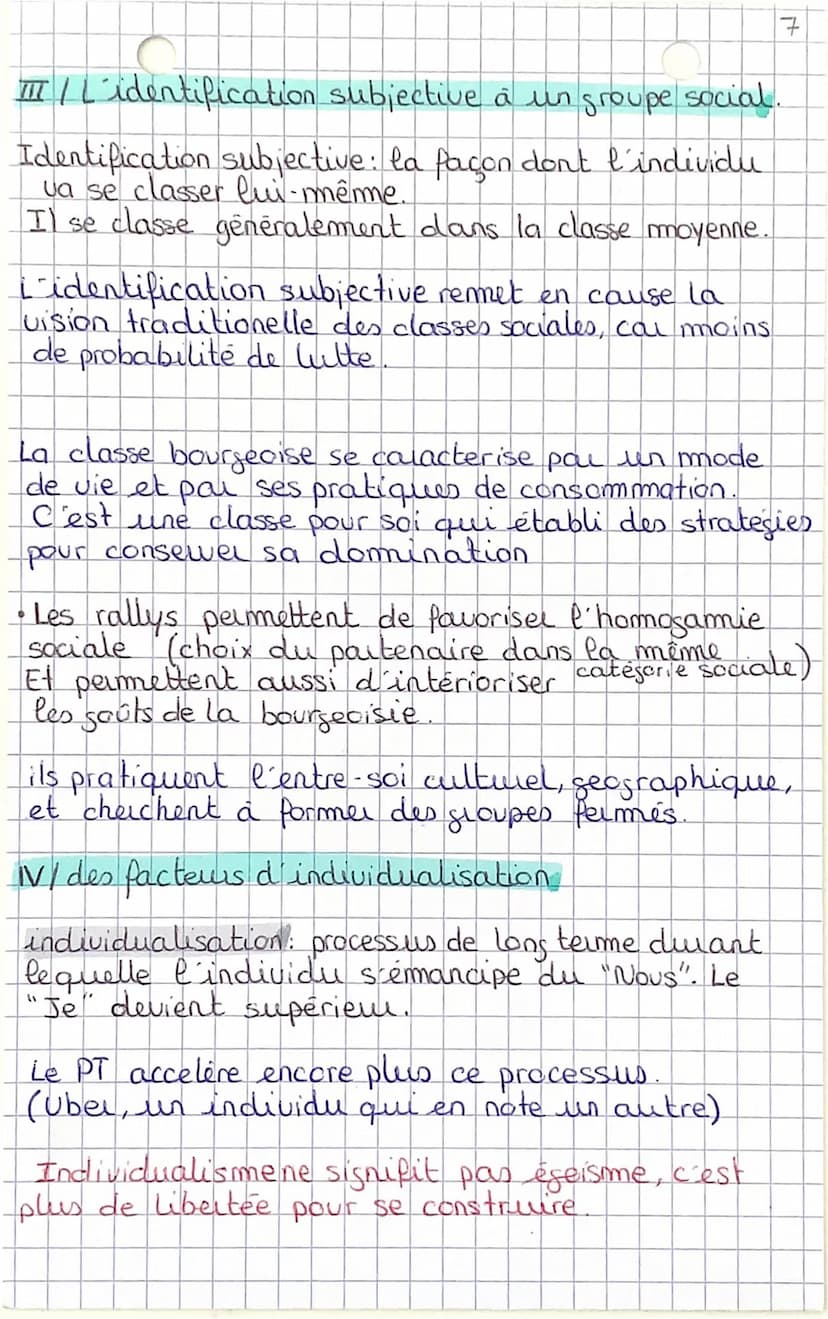 7
III / L'identification subjective à un groupe social.
Identification subjective : la façon dont l'individu
va se classer lui-même.
Il se classe généralement dans la classe moyenne.
L'identification subjective remet en cause la
vision traditionelle des classes sociales, car moins
de probabilité de lutte.
La classe bourgeoise se caracterise par un mode
de vie et par ses pratiques de consommation.
C'est une classe pour soi qui établi des stratégies
pour conserver sa domination
• Les rallys permettent de favoriser l'homogamie
sociale (choix du partenaire dans la même
catégorie sociale)
Et permettent aussi d'intérioriser
les goûts de la bourgeoisie.
ils pratiquent l'entre-soi culturel, geographique,
et cherchent à former des groupes fermés.
IV / des facteurs d'individualisation
individualisation : processus de long terme durant
lequelle l'individu s'émancipe du "Nous". Le
"Je" devient supérieur.
Le PT accelère encore plus ce processus.
(Uber, un individu qui en note un autre)
Individualisme ne signifit pas égoisme, c'est
plus de libertée pour se construire.